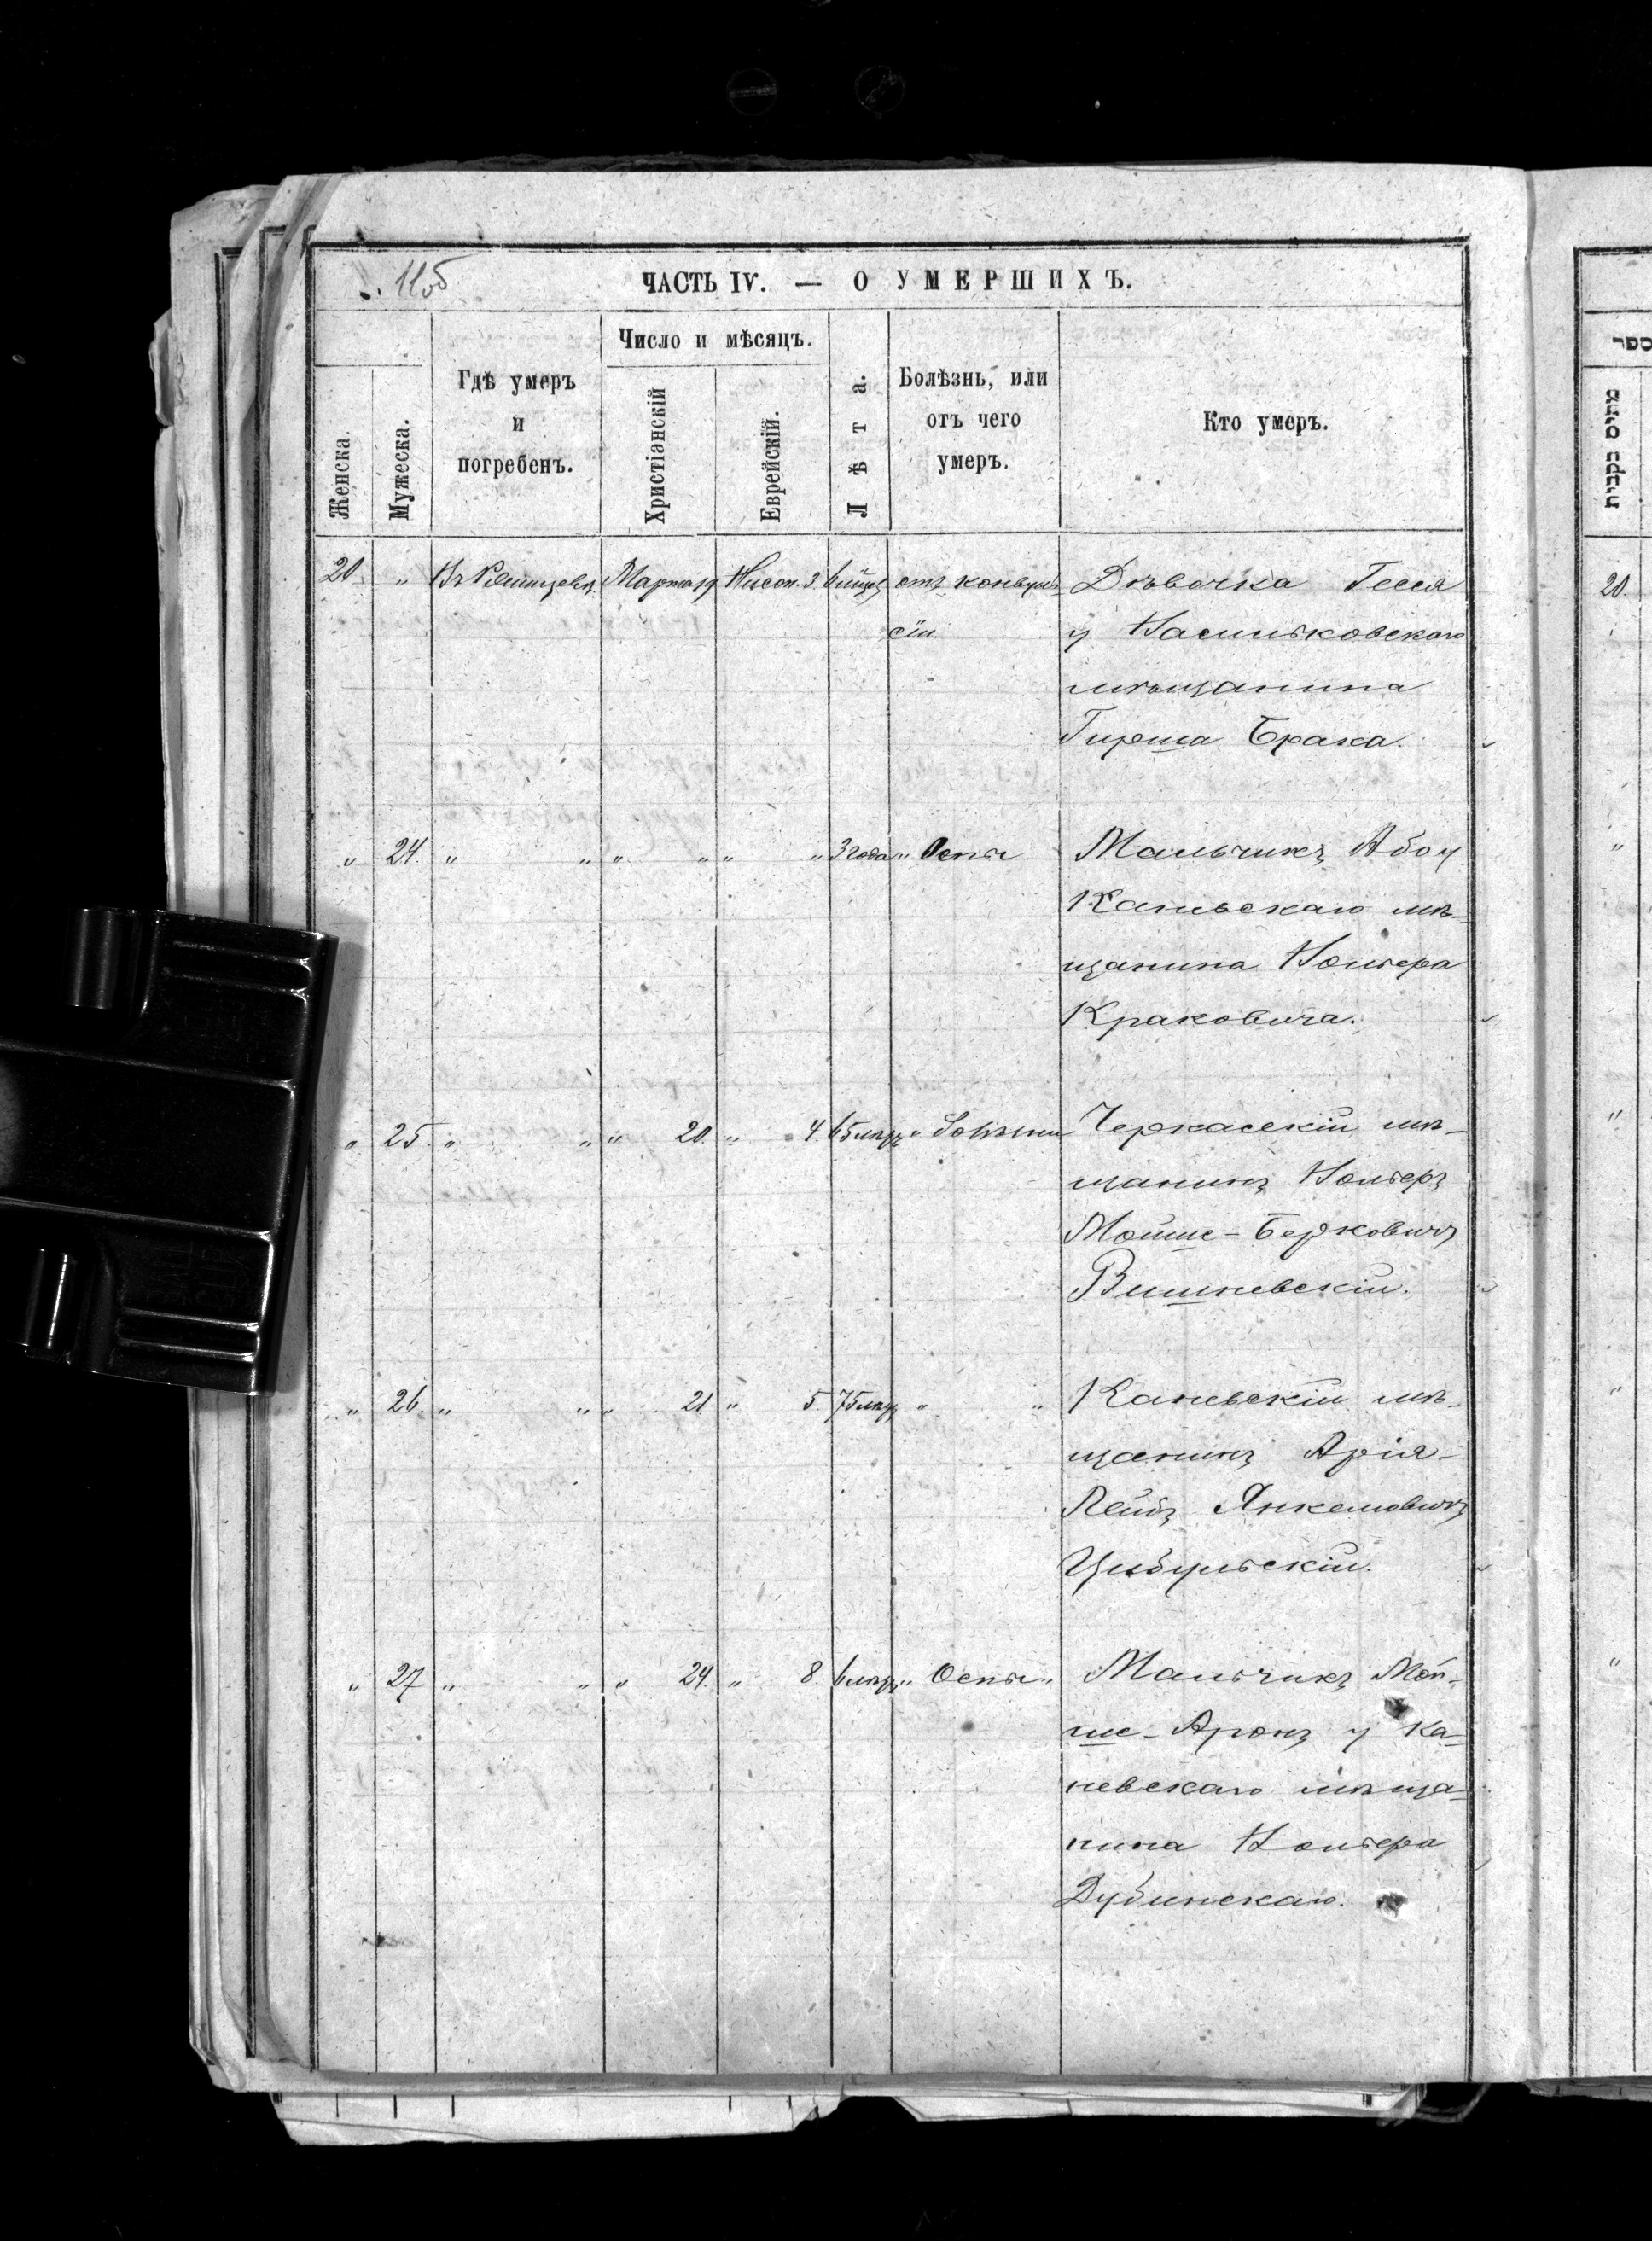 11об
ЧАСТЬ IV. — О УМЕРШИХЪ.
Женска.
Мужеска.
Гдѣ умеръ
и
погребенъ.
Число и мѣсяцъ.
Христіанскій
Еврейскій.
Лѣта.
Болѣзнь, или
отъ чего
умеръ.
Кто умеръ.
20 „ Въ Марта 19 Нисон. 3. 6 отъ конвуль- Дѣвочка Гесся
сіи. у Васильковскаго
мѣщанина
Гирша Брака.
„ 24. „ „ „ „ „ „ 3 года „ Оспы Мальчикъ Або у
Каневскаго мѣ-
щанина Вольфа
Краковича.
„ 25. „ „ „ 20. „ 4. 65 лѣтъ „ Черкасскій мѣ-
щанинъ
Мойше-Берковичъ
Вишневскій.
„ 26. „ „ „ 21 „ 5. 75 лѣтъ „ „ Каневскій мѣ-
щанинъ Арія-
Лейбъ Янкелевичъ
Цибульскій.
„ 27 „ „ „ 24. „ 8. 6 лѣтъ „ Оспы „ Мальчикъ Мой-
ше-Аронъ у Ка-
невскаго мѣща-
нина
Дубинскаго.
ספר
מתים נקבות
20.
„
„
„
„